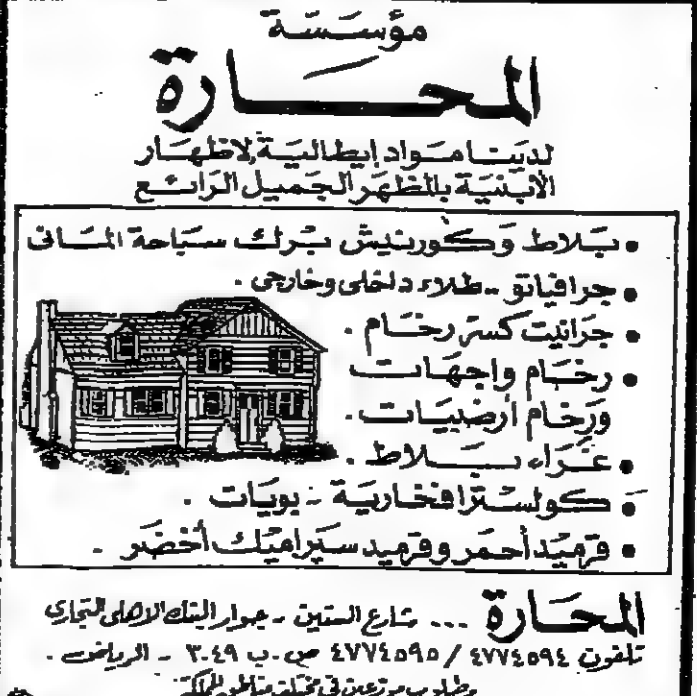 مؤسسة
المحارة
لدينا مواد إيطالية لاظهار
الأبنية بالمظهر الجميل الرائع
• بلاط وكورنيش برك سباحة المانى
• جرافياتو - طلاء داخلى وخارجى .
• جرانيت كسر رخام .
• رخام واجهات
ورخام أرضيات .
• غراء بلاط .
• كولسترا فخارية - بويات .
• قرميد أحمر وقرميد سيراميك أخضر .
المحارة ... شارع الستين - جوار البنك الاهلى التجارى
تلفون ٤٧٧٤٥٩٤ / ٤٧٧٤٥٩٥ ص.ب ٣٠٤٩ - الرياض .
مطلوب موزعين في مختلف مناطق المملكة